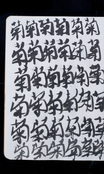 菊菊菊菊菊
菊菊菊菊菊
菊菊菊菊菊
菊菊菊菊菊
菊菊菊菊菊
菊菊菊菊菊
菊菊菊菊菊